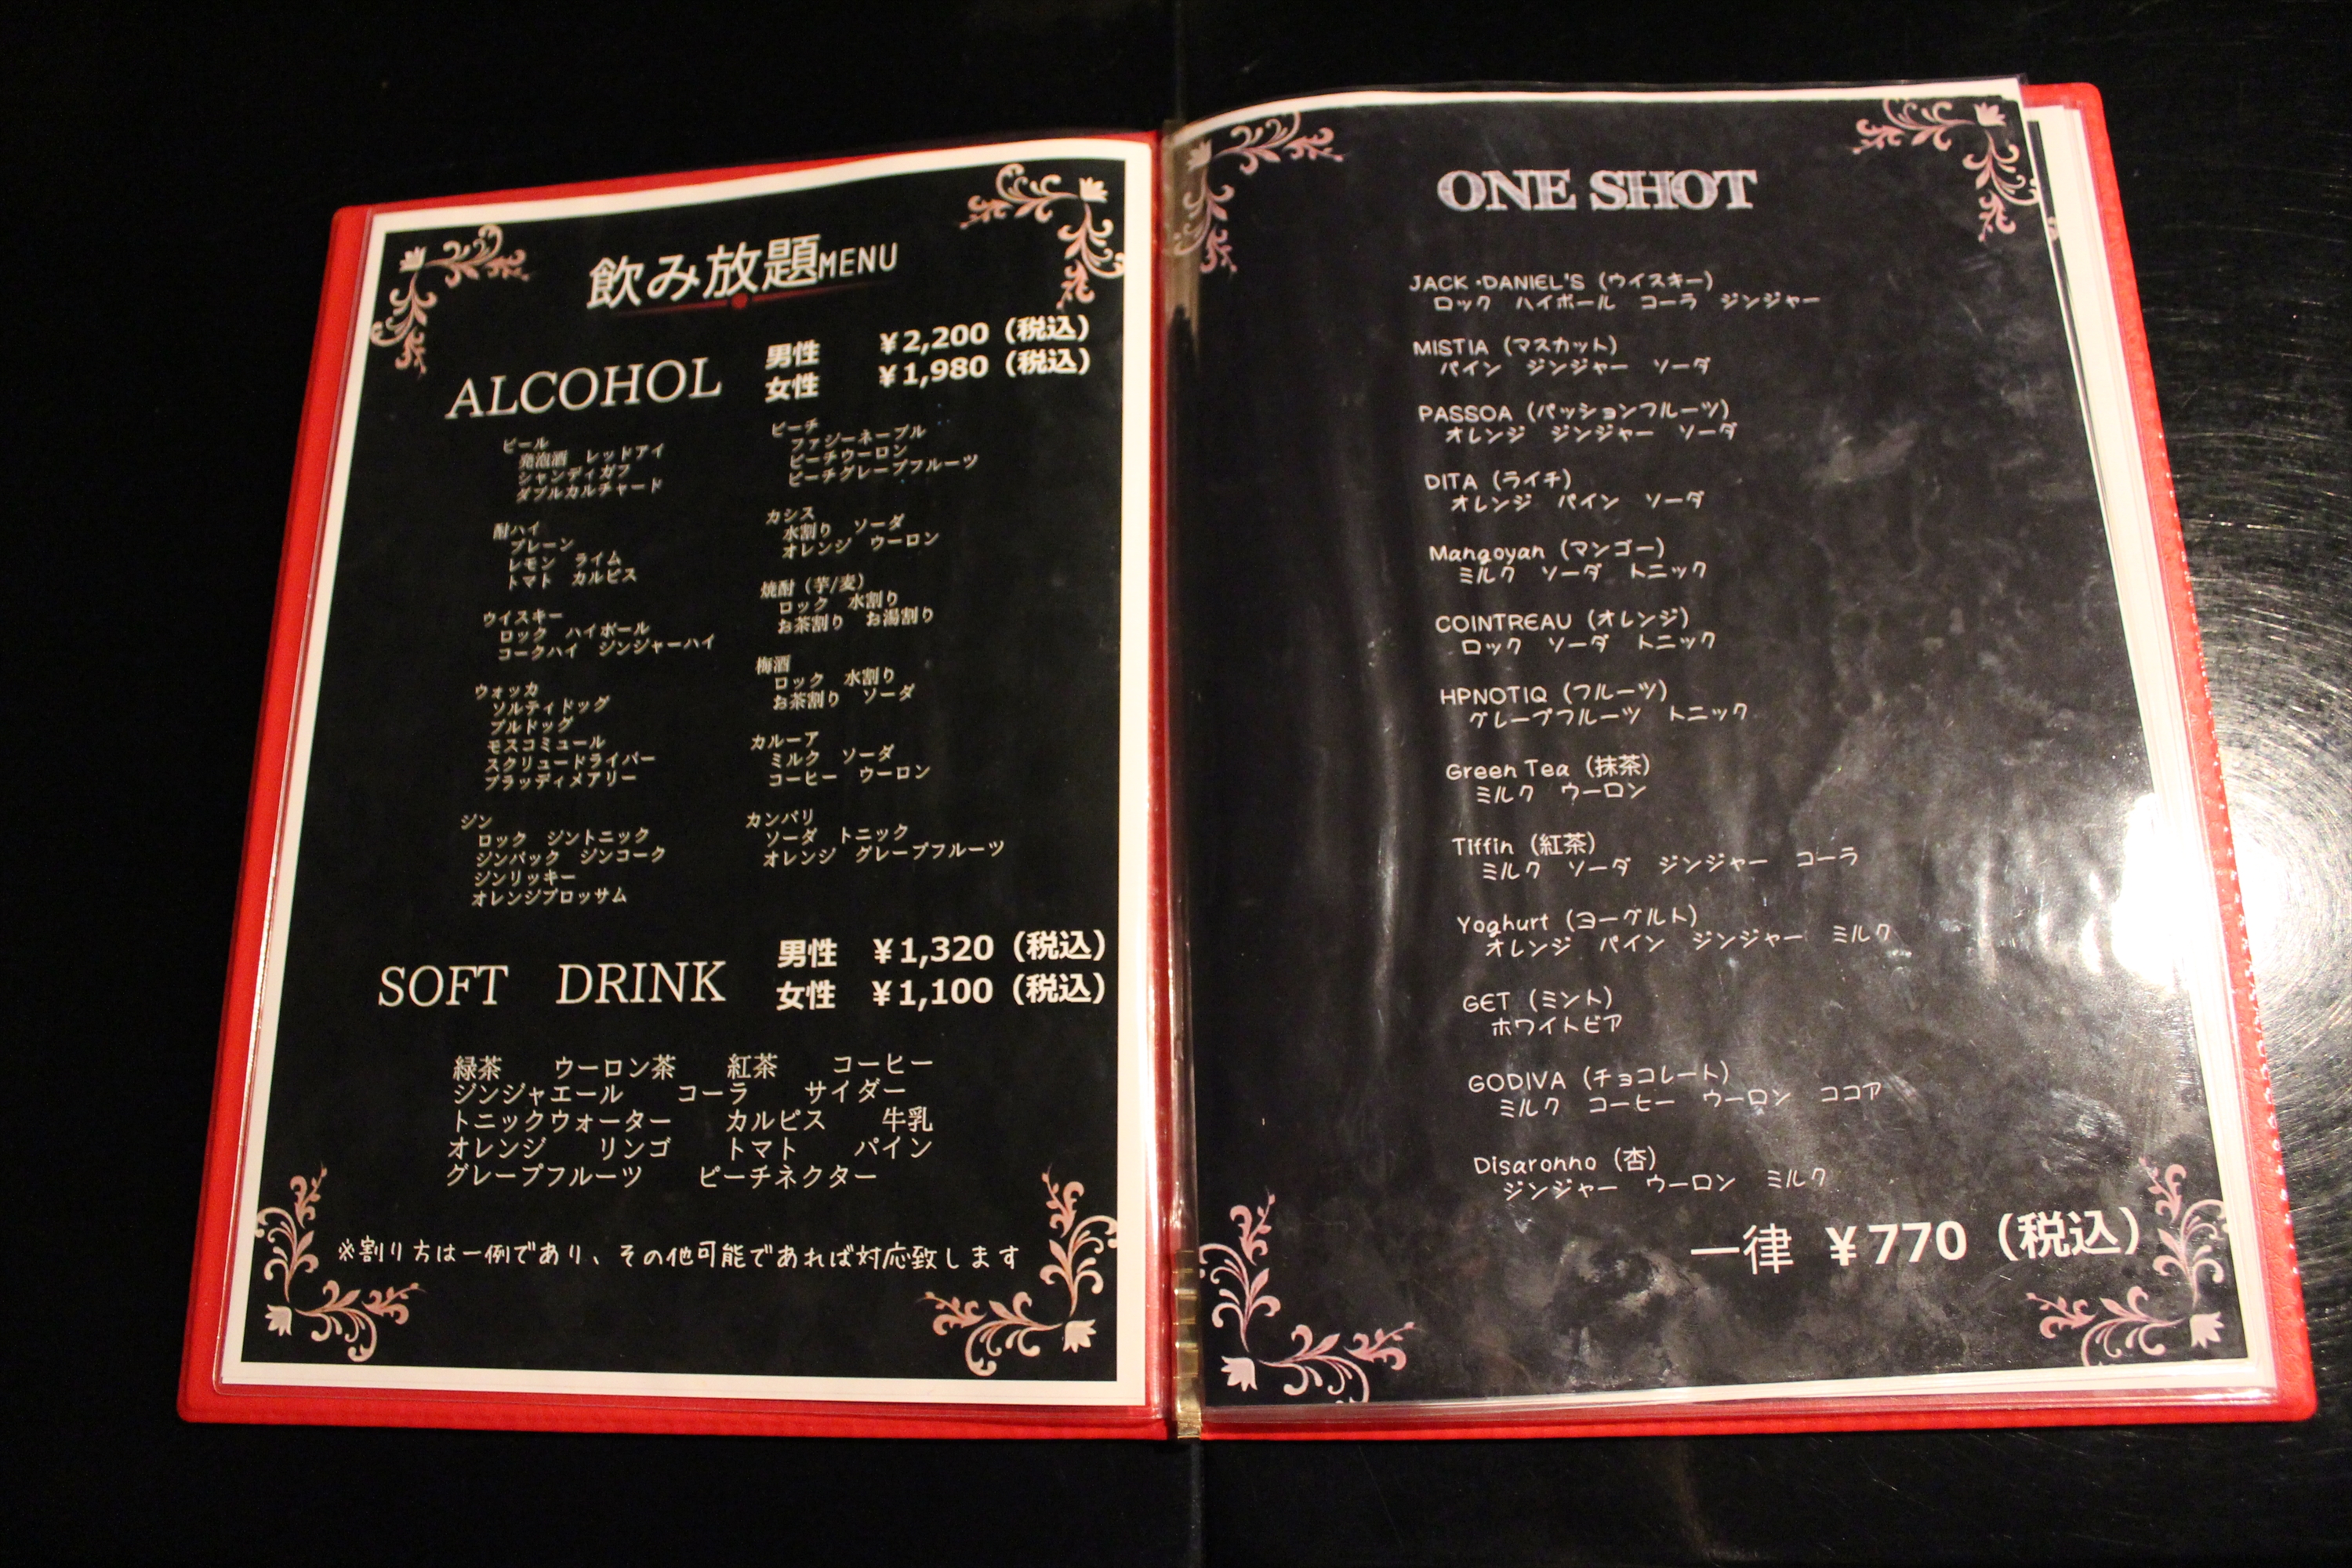 飲み放題MENU
ALCOHOL
男性 ¥2,200（税込）
女性 ¥1,980（税込）
ビール
発泡酒 レッドアイ
シャンディガフ
ダブルカルチャード
酎ハイ
プレーン
レモン ライム
トマト カルピス
ウイスキー
ロック ハイボール
コークハイ ジンジャーハイ
ウォッカ
ソルティドッグ
ブルドッグ
モスコミュール
スクリュードライバー
ブラッディメアリー
ジン
ロック ジントニック
ジンバック ジンコーク
ジンリッキー
オレンジブロッサム
ピーチ
ファジーネーブル
ピーチウーロン
ピーチグレープフルーツ
カシス
水割り ソーダ
オレンジ ウーロン
焼酎（芋/麦）
ロック 水割り
お茶割り お湯割り
梅酒
ロック 水割り
お茶割り ソーダ
カルーア
ミルク ソーダ
コーヒー ウーロン
カンパリ
ソーダ トニック
オレンジ グレープフルーツ
SOFT DRINK
男性 ¥1,320（税込）
女性 ¥1,100（税込）
緑茶 ウーロン茶 紅茶 コーヒー
ジンジャエール コーラ サイダー
トニックウォーター カルピス 牛乳
オレンジ リンゴ トマト パイン
グレープフルーツ ピーチネクター
※割り方は一例であり、その他可能であれば対応致します
ONE SHOT
JACK・DANIEL'S（ウイスキー）
ロック ハイボール コーラ ジンジャー
MISTIA（マスカット）
パイン ジンジャー ソーダ
PASSOA（パッションフルーツ）
オレンジ ジンジャー ソーダ
DITA（ライチ）
オレンジ パイン ソーダ
Mangoyan（マンゴー）
ミルク ソーダ トニック
COINTREAU（オレンジ）
ロック ソーダ トニック
HPNOTIQ（フルーツ）
グレープフルーツ トニック
Green Tea（抹茶）
ミルク ウーロン
Tiffin（紅茶）
ミルク ソーダ ジンジャー コーラ
Yoghurt（ヨーグルト）
オレンジ パイン ジンジャー ミルク
GET（ミント）
ホワイトビア
GODIVA（チョコレート）
ミルク コーヒー ウーロン ココア
Disaronno（杏）
ジンジャー ウーロン ミルク
一律 ¥770（税込）